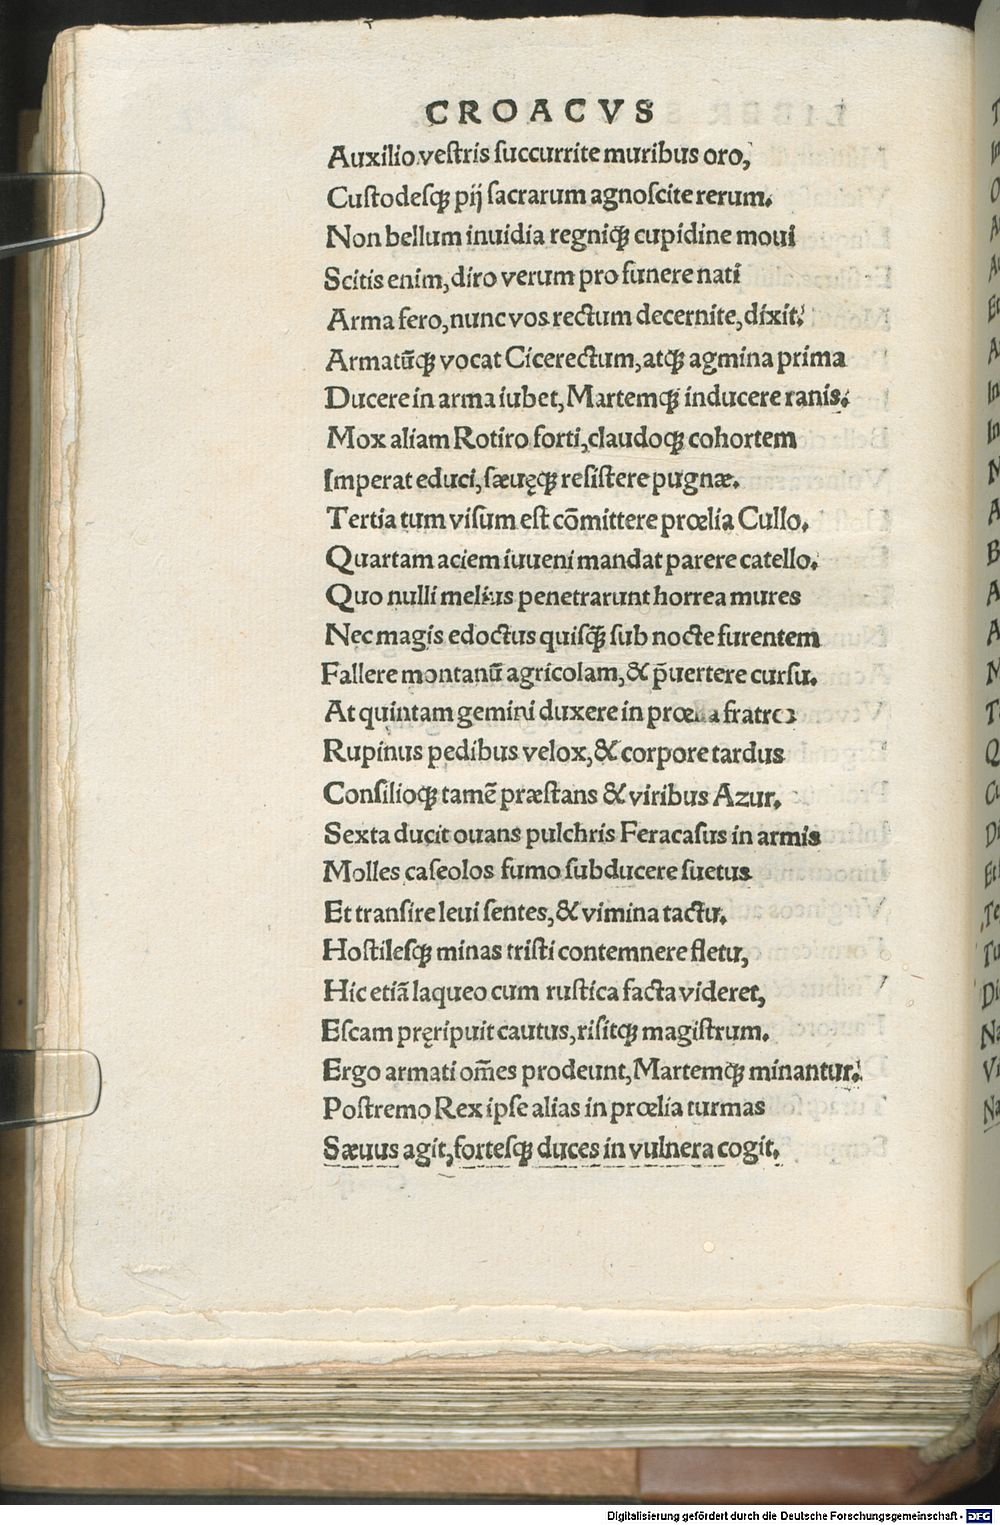 CROACVS
Auxilio veſtris ſuccurrite muribus oro,
Cuſtodeſq̃ pij ſacrarum agnoſcite rerum.
Non bellum inuidia regniq̃ cupidine moui
Scitis enim, diro verum pro funere nati
Arma fero, nunc vos rectum decernite, dixit.
Armatūq̃ vocat Cicerectum, atq̃ agmina prima
Ducere in arma iubet, Martemq̃ inducere ranis.
Mox aliam Rotiro forti, claudoq̃ cohortem
Imperat educi, ſæuęq̃ reſiſtere pugnæ.
Tertia tum viſum eſt cōmittere prœlia Cullo.
Quartam aciem iuueni mandat parere catello.
Quo nulli melius penetrarunt horrea mures
Nec magis edoctus quiſq̃ ſub nocte furentem
Fallere montanū agricolam, & p̄uertere curſu.
At quintam gemini duxere in prœlia fratres
Rupinus pedibus velox, & corpore tardus
Conſilioq̃ tamē præſtans & viribus Azur.
Sexta ducit ouans pulchris Feracaſus in armis
Molles caſeolos fumo ſubducere ſuetus
Et tranſire leui ſentes, & vimina tactu.
Hoſtileſq̃ minas triſti contemnere fletu,
Hic etiā laqueo cum ruſtica facta videret,
Eſcam pręripuit cautus, riſitq̃ magiſtrum.
Ergo armati om̄es prodeunt, Martemq̃ minantur.
Poſtremo Rex ipſe alias in prœlia turmas
Sæuus agit, forteſq̃ duces in vulnera cogit.
Digitalisierung gefördert durch die Deutsche Forschungsgemeinschaft - DFG